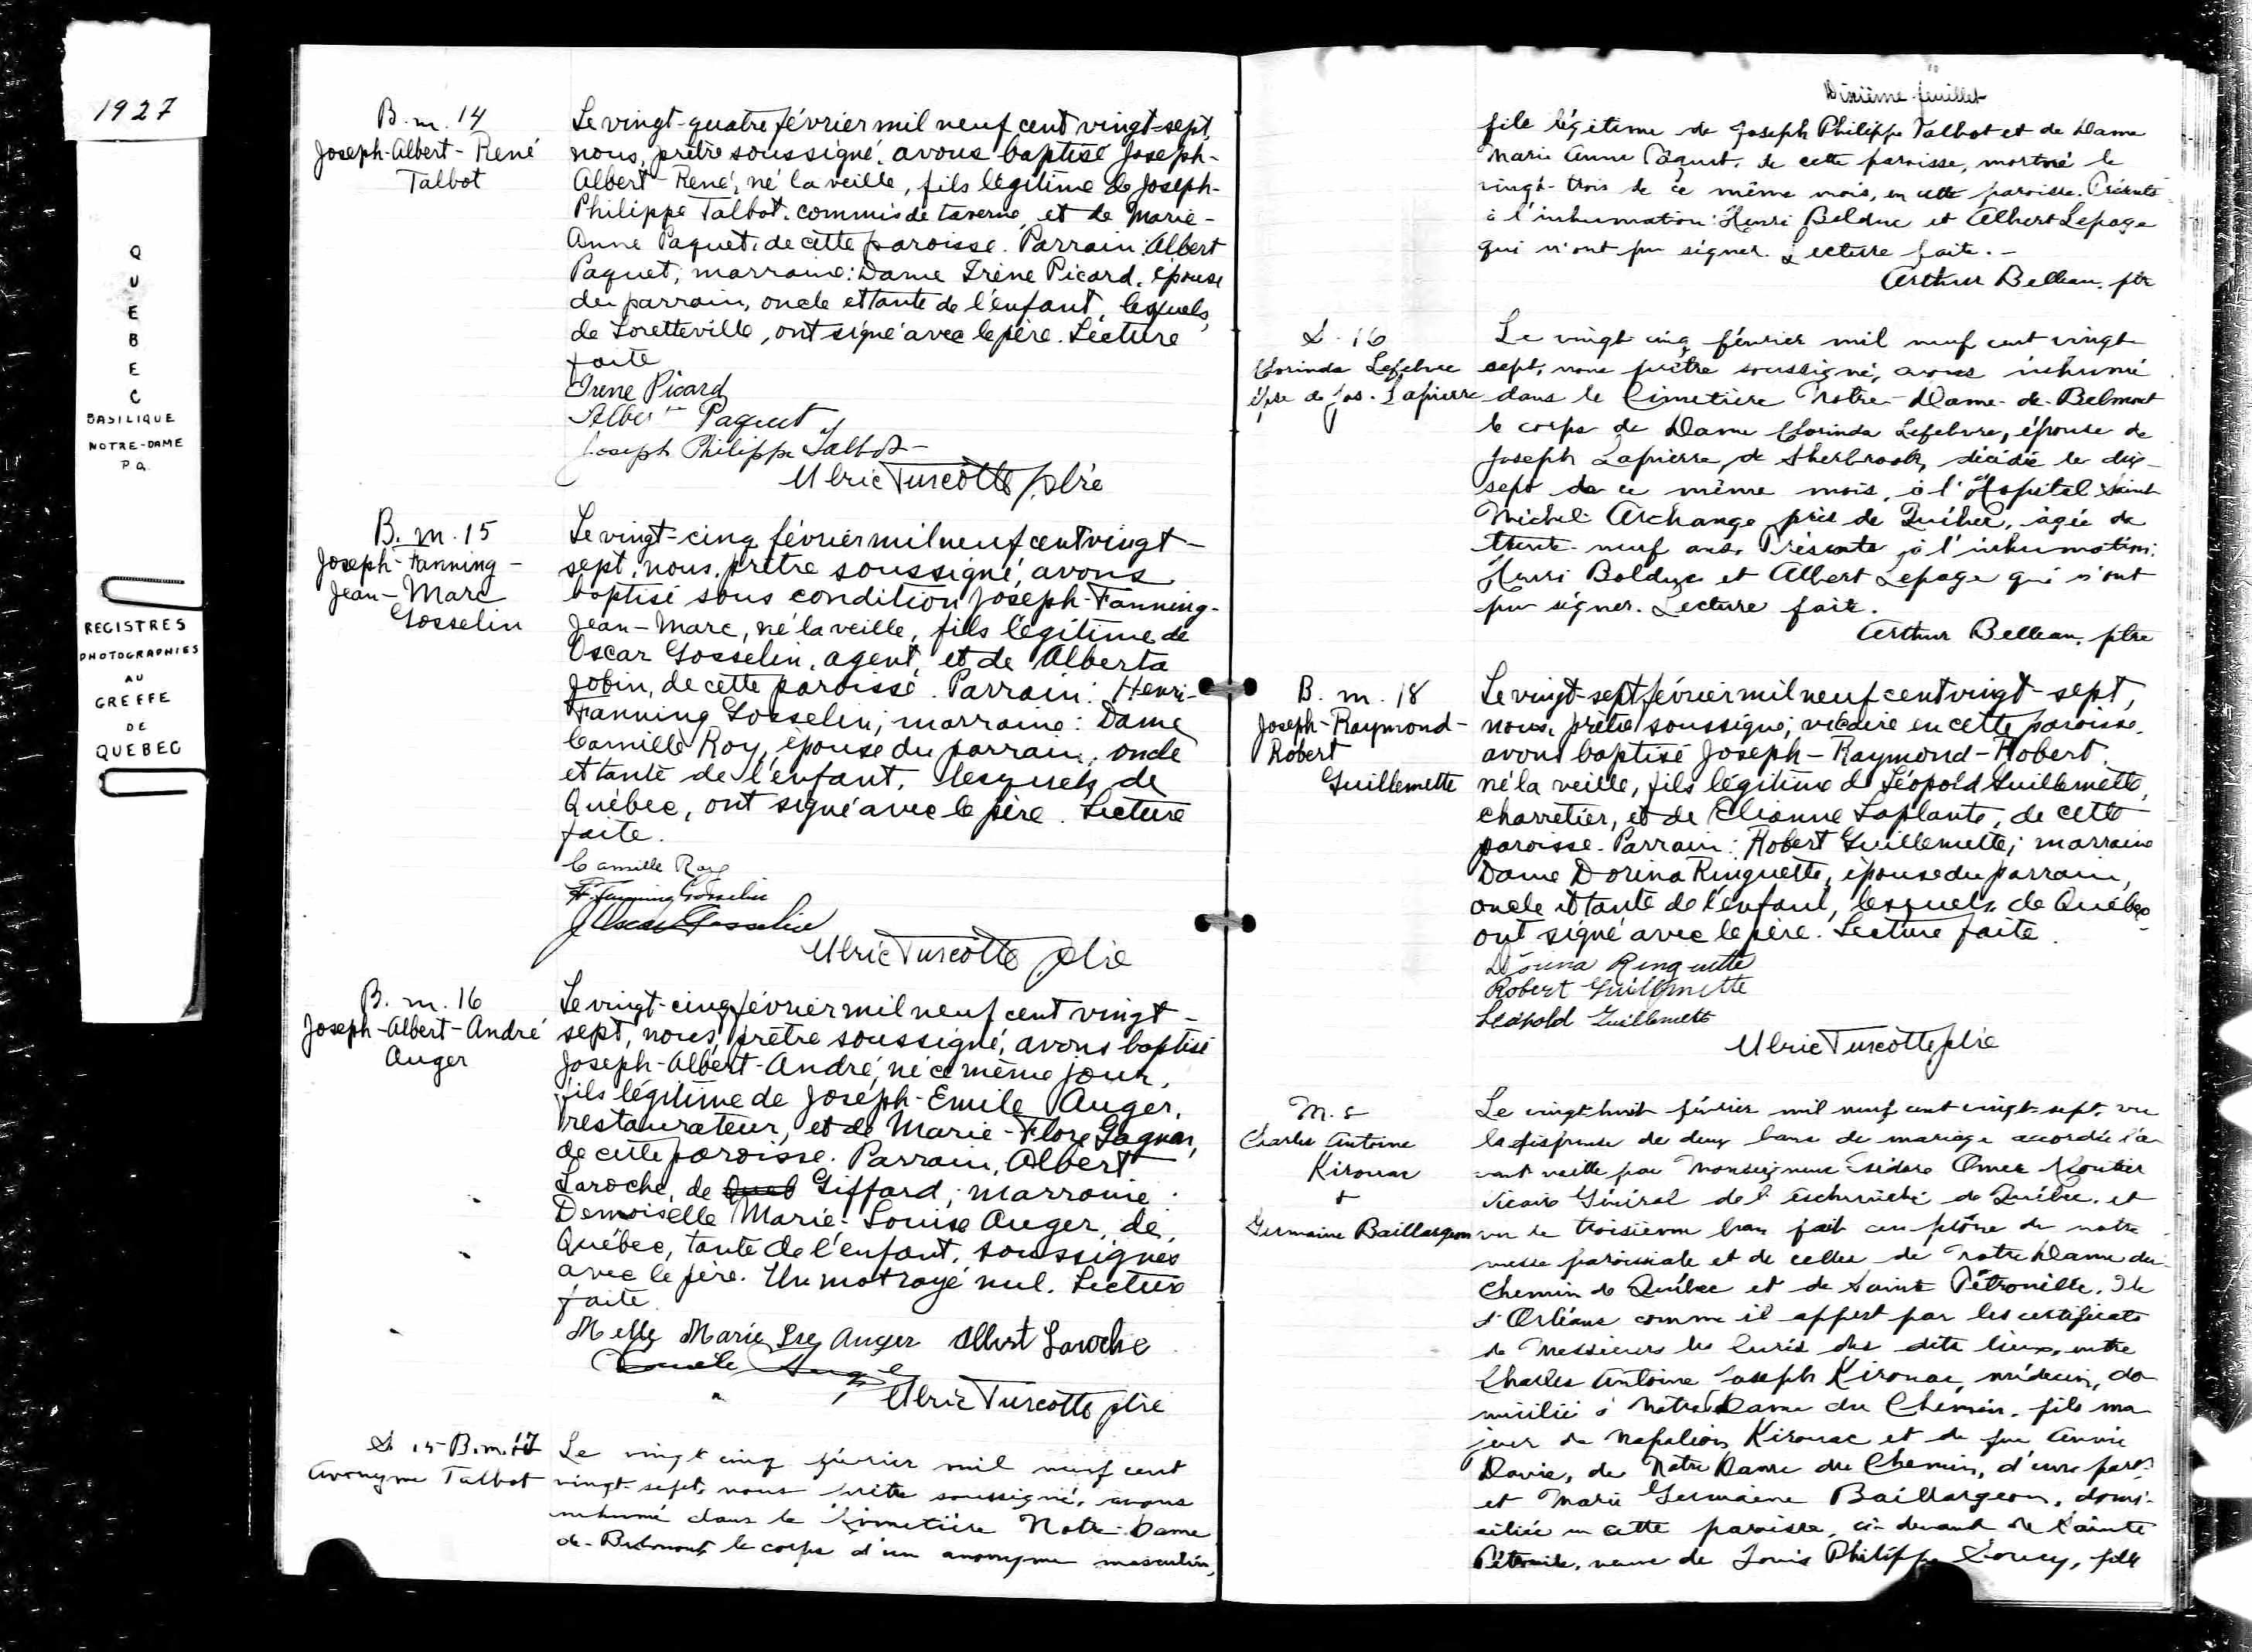 1927
QUEBEC
BASILIQUE
NOTRE-DAME
P Q.
REGISTRES
PHOTOGRAPHIES
AU
GREFFE
DE
QUEBEC
B. m. 14
Joseph-Albert-René
Talbot
Le vingt-quatre février mil neuf cent vingt-sept,
nous, prêtre soussigné, avons baptisé Joseph-
Albert-René, né la veille, fils légitime de Joseph-
Philippe Talbot, commis de taverne, et de Marie-
Anne Paquet, de cette paroisse. Parrain: Albert
Paquet; marraine: Dame Irène Picard, épouse
du parrain, oncle et tante de l'enfant, lesquels,
de Loretteville, ont signé avec le père. Lecture
faite
Irene Picard
Albert Paquet
Joseph Philippe Talbot
Ulric Turcotte ptre
B. m. 15
Joseph-Fanning-
Jean-Marc
Gosselin
Le vingt-cinq février mil neuf cent vingt-
sept, nous, prêtre soussigné, avons
baptisé sous condition Joseph-Fanning-
Jean-Marc, né la veille, fils légitime de
Oscar Gosselin, agent, et de Alberta
Jobin, de cette paroisse. Parrain: Henri-
Fanning Gosselin; marraine: Dame
Camille Roy, épouse du parrain, oncle
et tante de l'enfant, lesquels, de
Québec, ont signé avec le père. Lecture
faite.
Camille Roy
H. Fanning Gosselin
J Oscar Gosselin
Ulric Turcotte ptre
B. m. 16
Joseph-Albert-André
Auger
Le vingt-cinq février mil neuf cent vingt-
sept, nous, prêtre soussigné, avons baptisé
Joseph-Albert-André, né ce même jour,
fils légitime de Joseph-Emile Auger,
restaurateur, et de Marie-Flore Gagnon,
de cette paroisse. Parrain, Albert
Laroche, de Queb Giffard; marraine:
Demoiselle Marie-Louise Auger, de
Québec, tante de l'enfant, soussignés
avec le père. Un mot rayé nul. Lecture
faite
Melle Marie Lse Auger Albert Laroche
Ulric Turcotte ptre
S. 15 B. m. 17
Anonyme Talbot
Le vingt cinq février mil neuf cent
vingt-sept, nous prêtre soussigné, avons
inhumé dans le Cimetière Notre-Dame
de-Belmont, le corps d'un anonyme masculin,
Dixième feuillet
fils légitime de Joseph Philippe Talbot et de Dame
Marie Anne Paquet, de cette paroisse, mort né le
vingt-trois de ce même mois, en cette paroisse. Présents
à l'inhumation: Henri Bolduc et Albert Lepage
qui n'ont pu signer. Lecture faite.-
Arthur Belleau, ptr
S. 16
Clorinda Lefebvre
épse de Jos. Lapierre
Le vingt cinq février mil neuf cent vingt
sept, nous prêtre soussigné, avons inhumé
dans le Cimetière Notre-Dame-de-Belmont
le corps de Dame Clorinda Lefebvre, épouse de
Joseph Lapierre, de Sherbrook, décédée le dix-
sept de ce même mois, à l'Hôpital Saint
Michel Archange près de Québec, âgée de
trente-neuf ans. Présents à l'inhumation:
Henri Bolduc et Albert Lepage qui n'ont
pu signer. Lecture faite.
Arthur Belleau, ptre
B. m. 18
Joseph-Raymond-
Robert
Guillemette
Le vingt-sept février mil neuf cent vingt-sept,
nous, prêtre soussigné, vicaire en cette paroisse,
avons baptisé Joseph-Raymond-Robert,
né la veille, fils légitime de Léopold Guillemette,
charretier, et de Elianne Laplante, de cette
paroisse. Parrain: Robert Guillemette; marraine
Dame Dorina Ringuette, épouse du parrain,
oncle et tante de l'enfant, lesquels, de Québec
ont signé avec le père. Lecture faite.
Dorina Ringuette
Robert Guillemette
Léopold Guillemette
Ulric Turcotte ptre
M. 5
Charles Antoine
Kirouac
&
Germaine Baillargeon
Le vingt-huit février mil neuf cent vingt-sept, vu
la dispense de deux bans de mariage accordée l'a-
vant veille par Monseigneur Isidore Omer Cloutier
Vicaire Général de l'archevêché de Québec, et
vu le troisième ban fait au prône de notre
messe paroissiale et de celles de Notre Dame du
Chemin de Québec et de Sainte Pétronille, Ile
d'Orléans comme il appert par les certificats
de Messieurs les Curés des dits lieux, entre
Charles Antoine Joseph Kirouac, médecin, do-
micilié à Notre Dame du Chemin, fils ma
jeur de Napoléon Kirouac et de feu Annie
Davie, de Notre Dame du Chemin, d'une part
et Marie Germaine Baillargeon, domi-
ciliée en cette paroisse, ci-devant de Sainte
Pétronille, veuve de Louis Philippe Soucy, fille